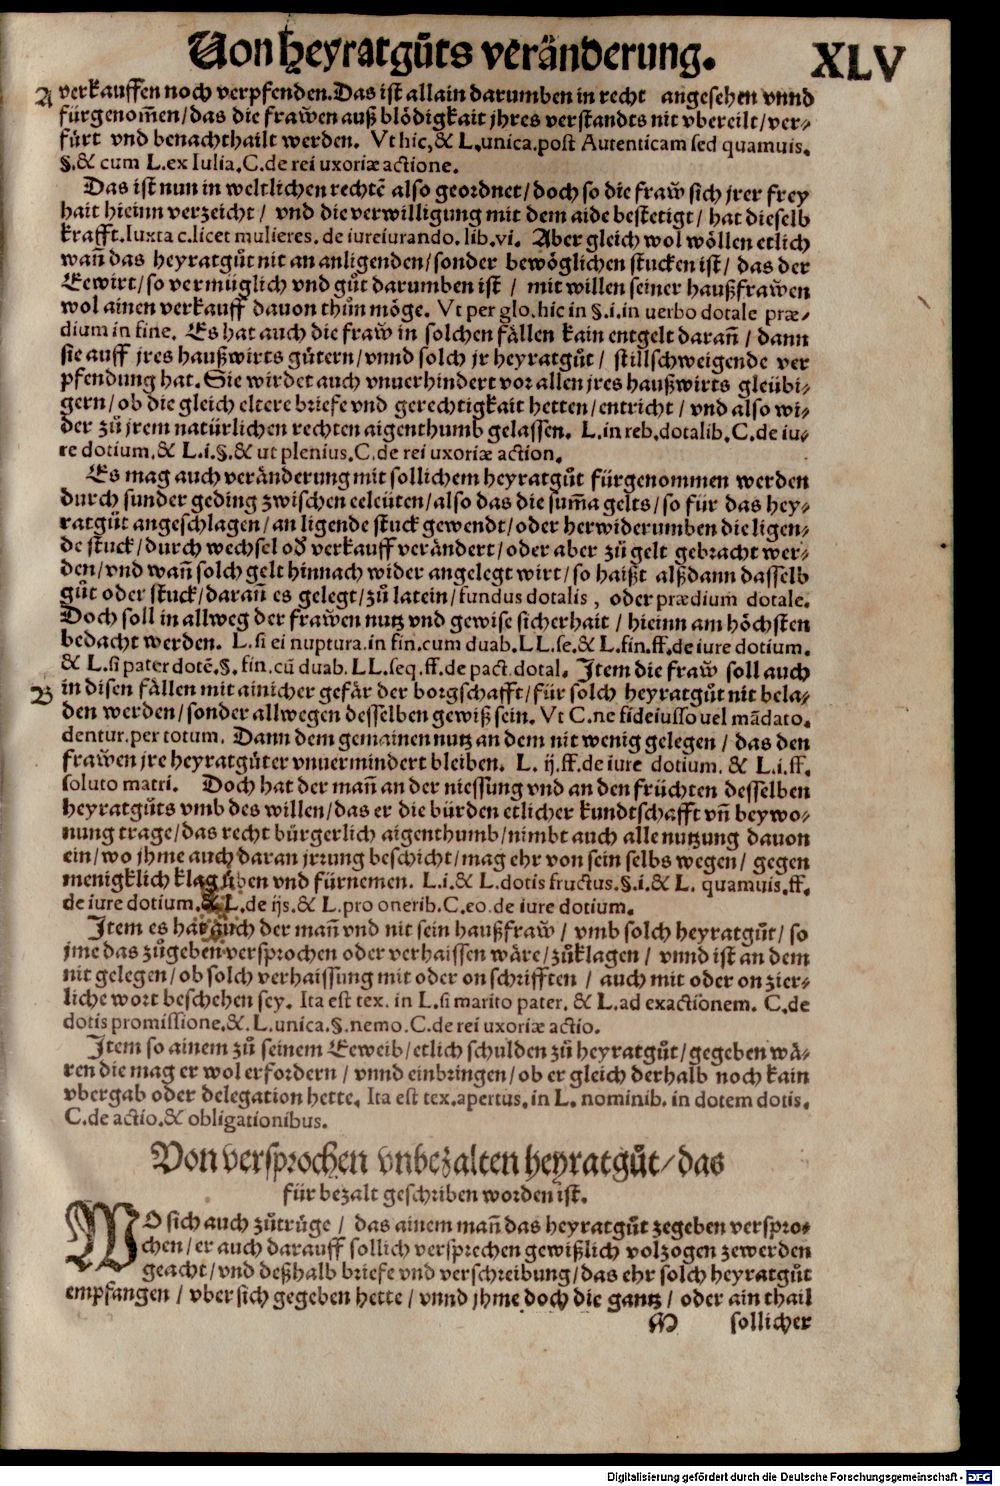 Von heyratgůts veränderung.
XLV
A verkauffen noch verpfenden. Das ist allain darumben in recht angesehen vnnd
fürgenom̄en / das die frawen auß blödigkait jhres verstandts nit vbereilt / ver-
fürt vnd benachthailt werden. Vt hic, & L.unica.post Autenticam sed quamuis.
§.& cum L.ex Iulia. C.de rei uxoriæ actione.
Das ist nun in weltlichen rechtē also geordnet / doch so die fraw sich jrer frey
hait hieinn verzeicht / vnd die verwilligung mit dem aide bestetigt / hat dieselb
krafft. Iuxta c.licet mulieres. de iureiurando. lib.vi. Aber gleich wol wöllen etlich
wan̄ das heyratgůt nit an anligenden / sonder bewöglichen stucken ist / das der
Eewirt / so vermüglich vnd gůt darumben ist / mit willen seiner haußfrawen
wol ainen verkauff dauon thůn möge. Vt per glo. hic in §.i.in uerbo dotale præ-
dium in fine. Es hat auch die fraw in solchen fällen kain entgelt daran̄ / dann
sie auff jres haußwirts gütern / vnnd solch jr heyratgůt / stillschweigende ver
pfendung hat. Sie wirdet auch vnuerhindert vor allen jres haußwirts gleübi-
gern / ob die gleich eltere briefe vnd gerechtigkait hetten / entricht / vnd also wi-
der zů jrem natürlichen rechten aigenthumb gelassen. L.in reb.dotalib. C.de iu-
re dotium.& L.i.§.& ut plenius. C.de rei uxoriæ action.
Es mag auch veränderung mit sollichem heyratgůt fürgenommen werden
durch sunder geding zwischen eeleüten / also das die sum̄a gelts / so für das hey-
ratgůt angeschlagen / an ligende stuck gewendt / oder herwiderumben die ligen-
de stuck / durch wechsel od̕ verkauff verändert / oder aber zů gelt gebracht wer-
den / vnd wan̄ solch gelt hinnach wider angelegt wirt / so haißt alßdann dasselb
gůt oder stuck / daran̄ es gelegt / zů latein / fundus dotalis, oder prædium dotale.
Doch soll in allweg der frawen nutz vnd gewise sicherhait / hieinn am höchsten
bedacht werden. L.si ei nuptura.in fin.cum duab.LL.se.& L.fin.ff.de iure dotium.
& L.si pater dotē.§.fin.cū duab.LL.seq.ff.de pact.dotal. Item die fraw soll auch
B in disen fällen mit ainicher gefär der borgschafft / für solch heyratgůt nit bela-
den werden / sonder allwegen desselben gewiß sein. Vt C.ne fideiusso uel mādato.
dentur.per totum. Dann dem gemainen nutz an dem nit wenig gelegen / das den
frawen jre heyratgüter vnuermindert bleiben. L. ij.ff.de iure dotium. & L.i.ff.
soluto matri. Doch hat der man̄ an der niessung vnd an den früchten desselben
heyratgůts vmb des willen / das er die bürden etlicher kundtschafft vn̄ beywo-
nung trage / das recht bürgerlich aigenthumb / nimbt auch alle nutzung dauon
ein / wo jhme auch daran jrrung beschicht / mag ehr von sein selbs wegen / gegen
menigklich klag üben vnd fürnemen. L.i.& L.dotis fructus.§.i.& L. quamuis.ff.
de iure dotium.& L.de ijs.& L.pro onerib.C.eo.de iure dotium.
Item es hat auch der man̄ vnd nit sein haußfraw / vmb solch heyratgůt / so
jme das zůgeben versprochen oder verhaissen wäre / zůklagen / vnnd ist an dem
nit gelegen / ob solch verhaissung mit oder on schrifften / auch mit oder on zier-
liche wort beschehen sey. Ita est tex. in L.si marito pater. & L.ad exactionem. C.de
dotis promissione.&. L.unica.§.nemo.C.de rei uxoriæ actio.
Item so ainem zů seinem Eeweib / etlich schulden zů heyratgůt / gegeben wä-
ren die mag er wol erfordern / vnnd einbringen / ob er gleich derhalb noch kain
vbergab oder delegation hette. Ita est tex.apertus.in L. nominib. in dotem dotis.
C.de actio.& obligationibus.
Von versprochen vnbezalten heyratgůt / das
für bezalt geschriben worden ist.
WO sich auch zůtrüge / das ainem man̄ das heyratgůt zegeben verspro-
chen / er auch darauff sollich versprechen gewißlich volzogen zewerden
geacht / vnd deßhalb briefe vnd verschreibung / das ehr solch heyratgůt
empfangen / vber sich gegeben hette / vnnd jhme doch die gantz / oder ain thail
M sollicher
Digitalisierung gefördert durch die Deutsche Forschungsgemeinschaft - DFG